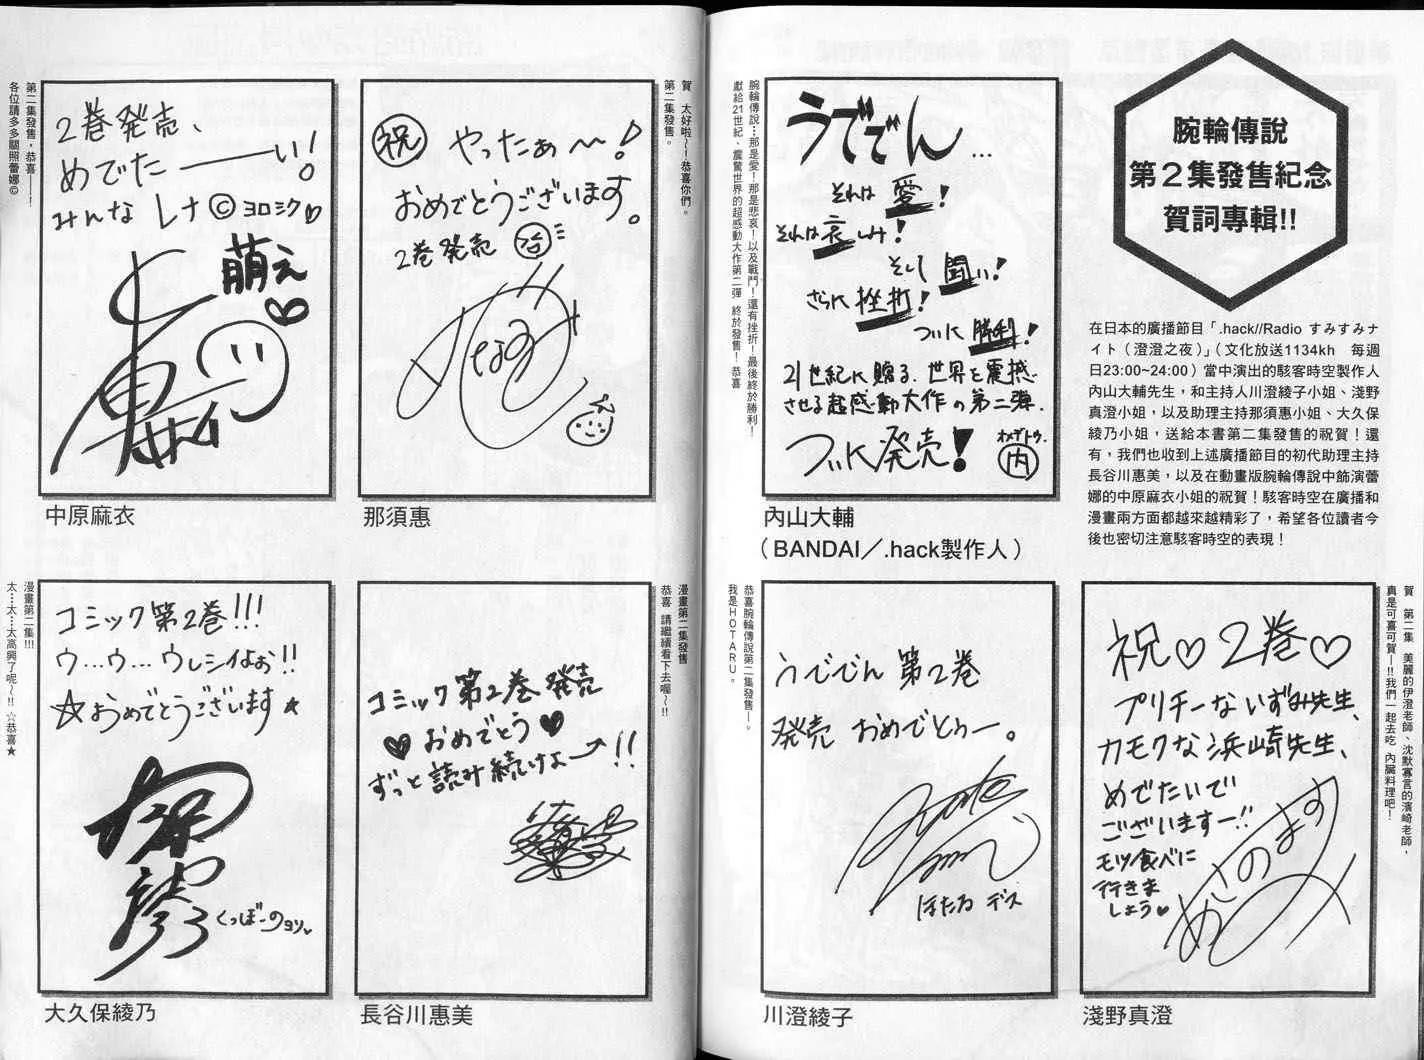 腕輪傳說
第2集發售紀念
賀詞專輯!!
在日本的廣播節目「.hack//Radio すみすみナ
イト（澄澄之夜）」（文化放送1134kh　每週
日23:00~24:00）當中演出的駭客時空製作人
內山大輔先生，和主持人川澄綾子小姐、淺野
真澄小姐，以及助理主持那須惠小姐、大久保
綾乃小姐，送給本書第二集發售的祝賀！還
有，我們也收到上述廣播節目的初代助理主持
長谷川惠美，以及在動畫版腕輪傳說中飾演蕾
娜的中原麻衣小姐的祝賀！駭客時空在廣播和
漫畫兩方面都越來越精彩了，希望各位讀者今
後也密切注意駭客時空的表現！
うででん…
それは 愛！
それは哀しみ！
そして 闘い！
さらに 挫折！
ついに 勝利！
21世紀に贈る、世界を震撼
させる超感動大作の第二弾.
ついに発売！
オメデトウ.
内
腕輪傳說…那是愛！那是悲哀！以及戰鬥！還有挫折！最後終於勝利！
獻給21世紀、震驚世界的超感動大作第二彈 終於發售！恭喜
內山大輔
（BANDAI／.hack製作人）
祝♡2巻♡
プリチーないずみ先生、
カモクな浜崎先生、
めでたいで
ございますー!!
モツ食べに
行きま
しょう♥
あさのますみ
賀　第二集 美麗的伊澄老師、沈默寡言的濱崎老師，
真是可喜可賀—!!我們一起去吃 內臟料理吧！
淺野真澄
うででん 第2巻
発売 おめでとぅー。
ほたる デス
恭喜腕輪傳說第二集發售—。
我是HOTARU。
川澄綾子
祝 やったぁ〜！
おめでとうございます。
2巻発売 ㊗
なすめぐみ
賀　太好啦~！恭喜你們。
第二集發售。
那須惠
2巻発売、
めでたーーい！
みんな レナ©ヨロシク♡
萌え
♡
第二集發售，恭喜——！
各位請多多關照蕾娜©
中原麻衣
コミック第2巻 発売
♥おめでとう♥
ずっと読み続けよーっ!!
漫畫第二集發售
恭喜 請繼續看下去喔~!!
長谷川惠美
コミック第2巻!!!
ウ…ウ…ウレシイよぉ!!
☆おめでとうございます★
くっぼーのヨソ、
漫畫第二集!!!
太…太…太高興了呢~!! ☆恭喜★
大久保綾乃